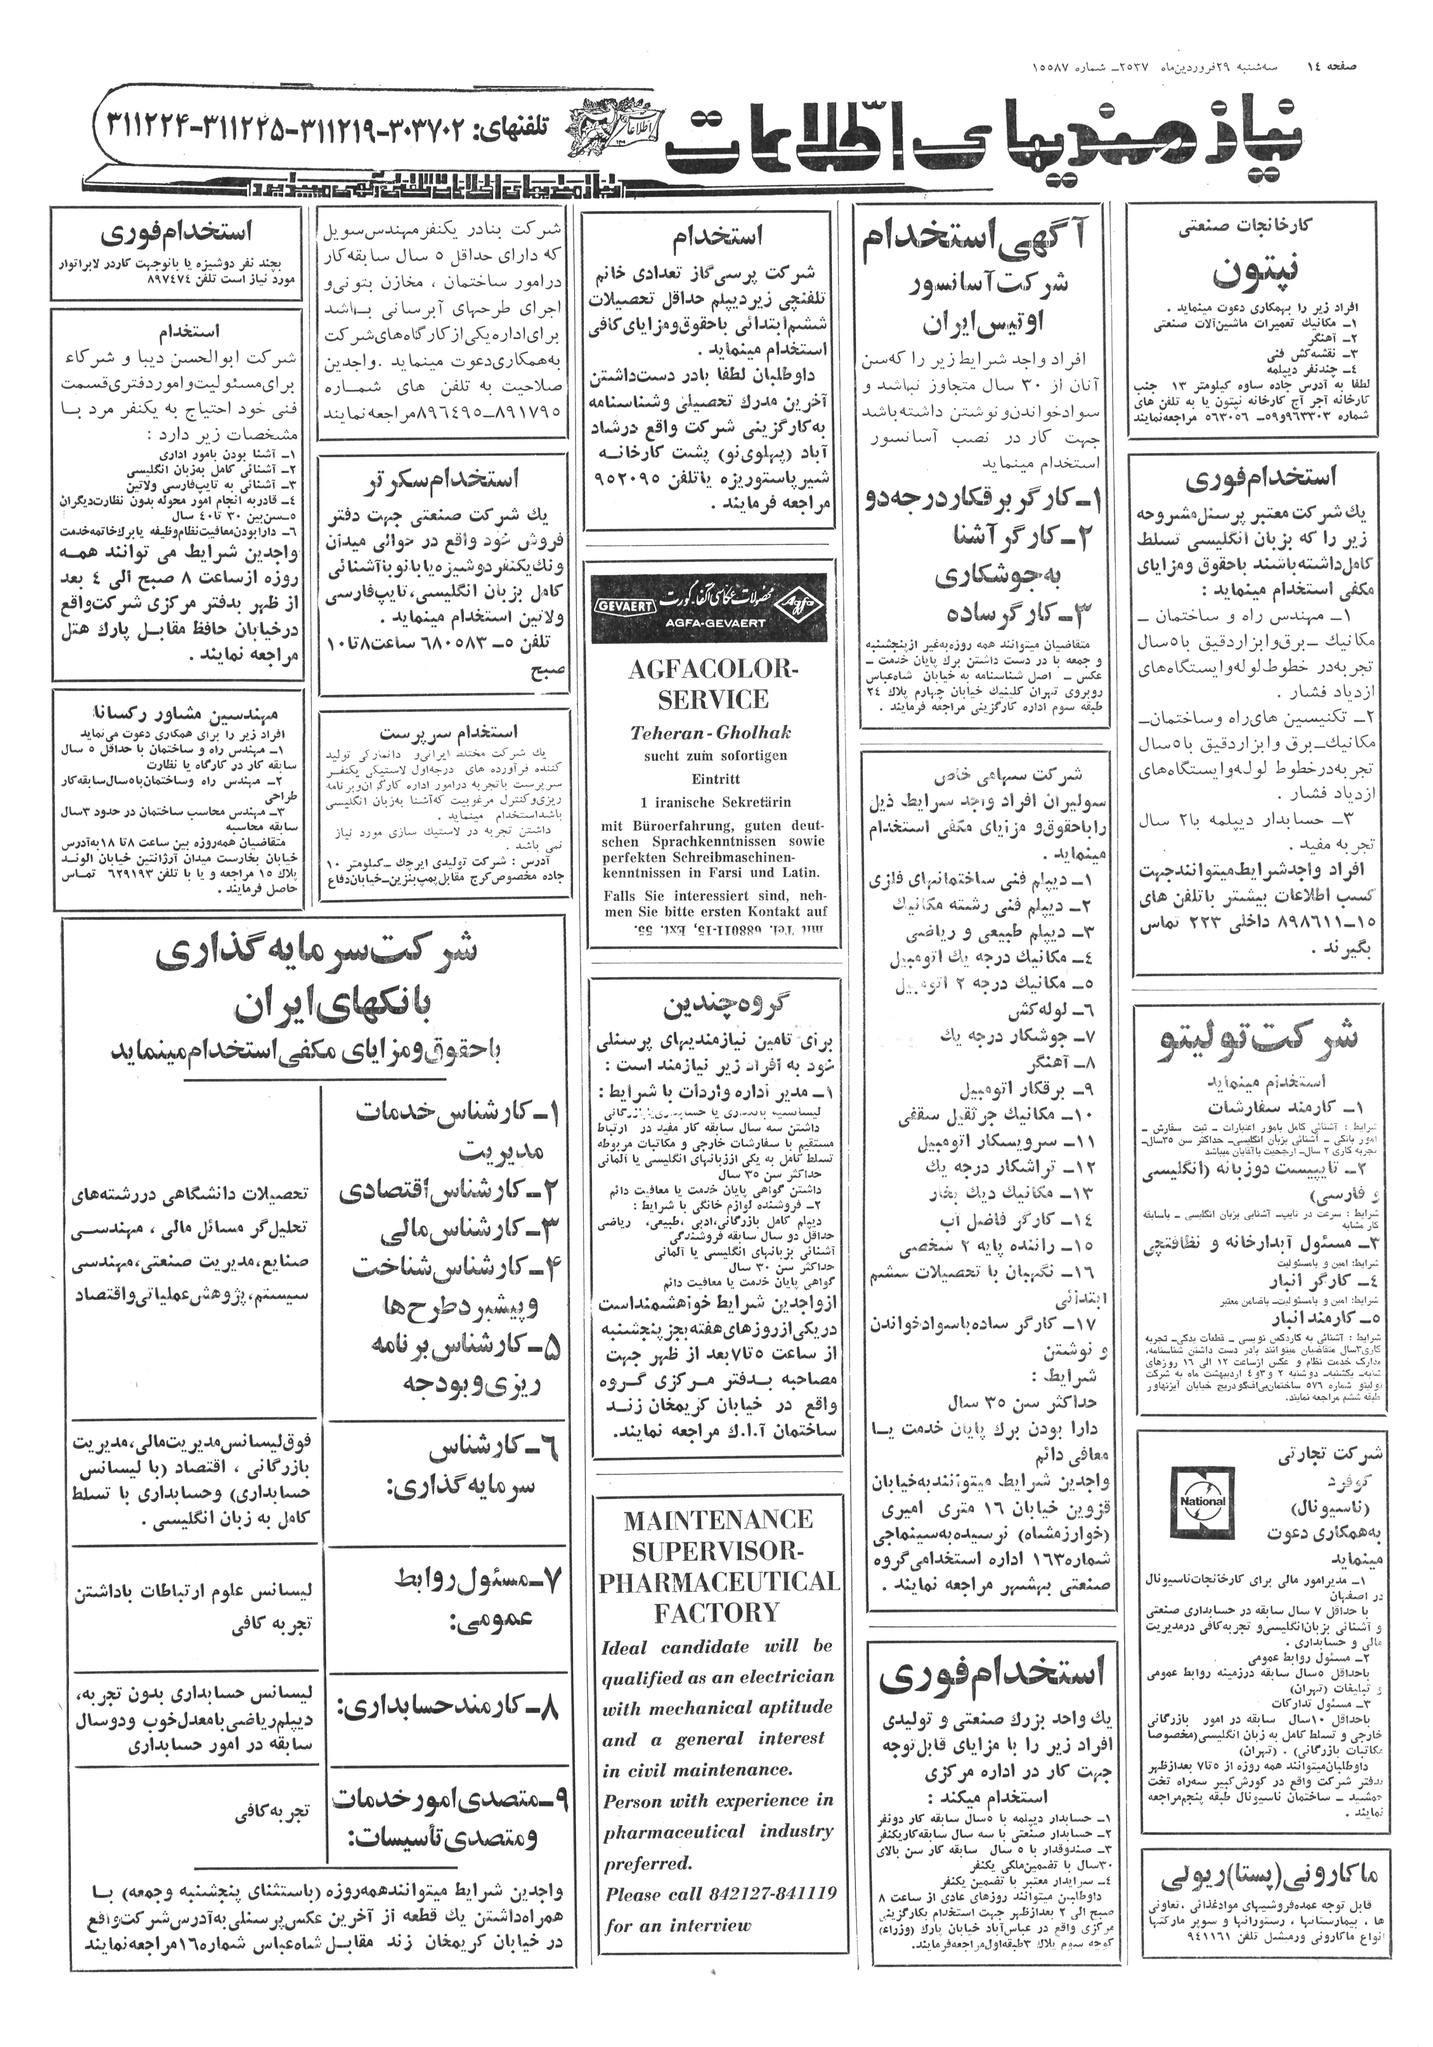 صفحه ۱۴ سه‌شنبه ۲۹ فروردین‌ماه ۲۵۳۷ـ شماره ۱۵۵۸۷
نیازمندیهای اطلاعات
تلفنهای: ۳۰۳۷۰۲-۳۱۱۲۱۹-۳۱۱۲۲۵-۳۱۱۲۲۴
نیازمندیهای اطلاعات تلفنی آگهی میپذیرد
کارخانجات صنعتی
نپتون
افراد زیر را بهمکاری دعوت مینماید .
۱ـ مکانیك تعمیرات ماشین‌آلات صنعتی
۲ـ آهنگر
۳ـ نقشه‌کش فنی
۴ـ چندنفر دیپلمه
لطفا به آدرس جاده ساوه کیلومتر ۱۳ جنب
کارخانه آجر آج کارخانه نپتون یا به تلفن های
شماره ۹۶۳۳۰۳و۵۹ـ ۵۶۳۰۵۶ مراجعه‌نمایند
استخدام فوری
یك شرکت معتبر پرسنل مشروحه
زیر را که بزبان انگلیسی تسلط
کامل داشته باشند باحقوق ومزایای
مکفی استخدام مینماید :
۱ـ مهندس راه و ساختمان ـ
مکانیك ـ برق وابزاردقیق با۵سال
تجربه در خطوط لوله وایستگاه‌های
ازدیاد فشار .
۲ـ تکنیسین های‌راه وساختمان‌ـ
مکانیك‌ـ برق وابزاردقیق با۵سال
تجربه‌درخطوط لوله وایستگاه‌های
ازدیاد فشار .
۳ـ حسابدار دیپلمه با۲ سال
تجربه مفید .
افراد واجدشرایط‌میتوانندجهت
کسب اطلاعات بیشتر باتلفن های
۱۵ـ۸۹۸۶۱۱ داخلی ۲۲۳ تماس
بگیرند .
شرکت تولیتو
استخدام مینماید
۱ـ کارمند سفارشات
شرایط : آشنائی کامل بامور اعتبارات ـ ثبت سفارش ـ
امور بانکی ـ آشنائی بزبان انگلیسی‌ـ حداکثر سن ۳۵سال‌ـ
تجربه کاری ۲ سال‌ـ ارجحیت باآقایان میباشد
۲ـ تایپیست دوزبانه (انگلیسی
و فارسی)
شرایط : سرعت در تایپ‌ـ آشنایی بزبان انگلیسی ـ باسابقه
کار مشابه
۳ـ مسئول آبدارخانه و نظافتچی
شرایط: امین و بامسئولیت
۴ـ کارگر انبار
شرایط: امین و بامسئولیت‌ـ باضامن معتبر
۵ـ کارمند انبار
شرایط : آشنائی به کاردکس نویسی ـ قطعات یدکی‌ـ تجربه
کاری۳سال متقاضیان میتوانند بادر دست داشتن شناسنامه،
مدارک خدمت نظام و عکس ازساعت ۱۲ الی ۱۶ روزهای
شنبه‌ـ یکشنبه‌ـ دوشنبه ۲ و۳و۴ اردیبهشت ماه به شرکت
تولیتو شماره ۵۷۶ ساختمان‌بی‌اف‌گودریج خیابان آیزنهاور
طبقه ششم مراجعه نمایند.
شرکت تجارتی
کوفرد
(ناسیونال)
به‌همکاری دعوت
مینماید
National
۱ـ مدیرامور مالی برای کارخانجات‌ناسیونال
در اصفهان
با حداقل ۷ سال سابقه در حسابداری صنعتی
و آشنائی بزبان‌انگلیسی‌و تجربه‌کافی درمدیریت
مالی و حسابداری .
۲ـ مسئول روابط عمومی
باحداقل ۵سال سابقه درزمینه روابط عمومی
و تبلیغات (تهران)
۳ـ مسئول تدارکات
باحداقل ۱۰سال سابقه در امور بازرگانی
خارجی و تسلط کامل به زبان انگلیسی(مخصوصا
مکاتبات بازرگانی) . (تهران)
داوطلبان‌میتوانند همه روزه از ۵تا۷ بعدازظهر
بدفتر شرکت واقع در کورش‌کبیر سه‌راه تخت
جمشید ـ ساختمان ناسیونال طبقه پنجم‌مراجعه
نمایند .
ماکارونی(پستا)ریولی
قابل توجه عمده‌فروشیهای موادغذائی ، تعاونی
ها ، بیمارستانها ، رستورانها و سوپر مارکتها
انواع ماکارونی ورمشل تلفن ۹۴۱۱۶۱
آگهی استخدام
شرکت آسانسور
اوتیس ایران
افراد واجد شرایط زیر را که‌سن
آنان از ۳۰ سال متجاوز نباشد و
سوادخواندن‌و نوشتن داشته‌باشد
جهت کار در نصب آسانسور
استخدام مینماید
۱ـ کارگر برقکار درجه دو
۲ـ کارگر آشنا
به‌جوشکاری
۳ـ کارگر ساده
متقاضیان میتوانند همه روزه به‌غیر ازپنجشنبه
و جمعه با در دست داشتن برك پایان خدمت ـ
عکس ـ اصل شناسنامه به خیابان شاه‌عباس
روبروی تهران کلینیك خیابان چهارم پلاك ۲۴
طبقه سوم اداره کارگزینی مراجعه فرمایند .
شرکت سهامی خاص
سولیران افراد واجد شرایط ذیل
را باحقوق و مزایای مکفی استخدام
مینماید .
۱ـ دیپلم فنی ساختمانهای فلزی
۲ـ دیپلم فنی رشته مکانیك
۳ـ دیپلم طبیعی و ریاضی
۴ـ مکانیك درجه یك اتومبیل
۵ـ مکانیك درجه ۲ اتومبیل
۶ـ لوله‌کش
۷ـ جوشکار درجه یك
۸ـ آهنگر
۹ـ برقکار اتومبیل
۱۰ـ مکانیك جرثقیل سقفی
۱۱ـ سرویسکار اتومبیل
۱۲ـ تراشکار درجه یك
۱۳ـ مکانیك دیك بخار
۱۴ـ کارگر فاضل آب
۱۵ـ راننده پایه ۲ شخصی
۱۶ـ نگهبان با تحصیلات ششم
ابتدائی
۱۷ـ کارگر ساده‌باسوادخواندن
و نوشتن
شرایط :
حداکثر سن ۳۵ سال
دارا بودن برك پایان خدمت یا
معافی دائم
واجدین شرایط میتوانندبه‌خیابان
قزوین خیابان ۱۶ متری امیری
(خوارزمشاه) نرسیده به‌سینماجی
شماره۱۶۳ اداره استخدامی‌گروه
صنعتی بهشهر مراجعه نمایند .
استخدام فوری
یك واحد بزرك صنعتی و تولیدی
افراد زیر را با مزایای قابل‌توجه
جهت کار در اداره مرکزی
استخدام میکند :
۱ـ حسابدار دیپلمه با ۵سال سابقه کار دونفر
۲ـ حسابدار صنعتی با سه سال سابقه‌کاریکنفر
۳ـ صندوقدار با ۵ سال سابقه کار سن بالای
۳۰سال با تضمین‌ملکی یکنفر
۴ـ سرایدار معتبر با تضمین یکنفر
داوطلبین میتوانند روزهای عادی از ساعت ۸
صبح الی ۲ بعدازظهر جهت استخدام بکارگزینی
مرکزی واقع در عباس‌آباد خیابان پارك (وزراء)
کوچه سوم پلاك ۳طبقه‌اول‌مراجعه‌فرمایند.
استخدام
شرکت پرسی‌گاز تعدادی خانم
تلفنچی زیردیپلم حداقل تحصیلات
ششم‌ابتدائی باحقوق‌و مزایای‌کافی
استخدام مینماید .
داوطلبان لطفا بادر دست‌داشتن
آخرین مدرك تحصیلی وشناسنامه
به‌کارگزینی شرکت واقع درشاد
آباد (پهلوی‌نو) پشت کارخانه
شیرپاستوریزه یاتلفن ۹۵۲۰۹۵
مراجعه فرمایند .
محصولات عکاسی آگفا. گورت
Agfa
GEVAERT
AGFA-GEVAERT
AGFACOLOR-
SERVICE
Teheran-Gholhak
sucht zum sofortigen
Eintritt
1 iranische Sekretärin
mit Büroerfahrung, guten deut-
schen Sprachkenntnissen sowie
perfekten Schreibmaschinen-
kenntnissen in Farsi und Latin.
Falls Sie interessiert sind, neh-
men Sie bitte ersten Kontakt auf
mit Tel. 688011-15, Ext. 55.
گروه چندین
برای تامین نیازمندیهای پرسنلی
خود به افراد زیر نیازمند است :
۱ـ مدیر اداره واردات با شرایط :
لیسانسیه بانکداری یا حسابداری‌یا بازرگانی
داشتن سه سال سابقه کار مفید در ارتباط
مستقیم با سفارشات خارجی و مکاتبات مربوطه
تسلط کامل به یکی اززبانهای انگلیسی یا آلمانی
حداکثر سن ۳۵ سال
داشتن گواهی پایان خدمت یا معافیت دائم
۲ـ فروشنده لوازم خانگی با شرایط :
دیپلم کامل بازرگانی،ادبی ،طبیعی، ریاضی
حداقل دو سال سابقه فروشندگی
آشنائی بزبانهای انگلیسی یا آلمانی
حداکثر سن ۳۰ سال
گواهی پایان خدمت یا معافیت دائم
ازواجدین شرایط خواهشمنداست
دریکی‌ازروزهای هفته بجزپنجشنبه
از ساعت ۵تا۷ بعد از ظهر جهت
مصاحبه بدفتر مرکزی گروه
واقع در خیابان کریمخان زند
ساختمان آ.ا.ك مراجعه نمایند.
MAINTENANCE
SUPERVISOR-
PHARMACEUTICAL
FACTORY
Ideal candidate will be
qualified as an electrician
with mechanical aptitude
and a general interest
in civil maintenance.
Person with experience in
pharmaceutical industry
preferred.
Please call 842127-841119
for an interview
شرکت بنادر یکنفر مهندس سویل
که دارای حداقل ۵ سال سابقه‌کار
درامور ساختمان ، مخازن بتونی‌و
اجرای طرحهای آبرسانی باشد
برای‌اداره یکی از کارگاه‌های‌شرکت
به‌همکاری دعوت مینماید . واجدین
صلاحیت به تلفن های شماره
۸۹۱۷۹۵ـ۸۹۶۴۹۵مراجعه‌نمایند
استخدام سکرتر
یك شرکت صنعتی جهت دفتر
فروش خود واقع در حوالی میدان
ونك یکنفردوشیزه یا بانو باآشنائی
کامل بزبان انگلیسی، تایپ‌فارسی
ولاتین استخدام مینماید .
تلفن ۵ـ ۶۸۰۵۸۳ ساعت ۸تا۱۰
صبح
استخدام سرپرست
یك شرکت مختلط ایرانی‌و دانمارکی تولید
کننده فرآورده های درجه‌اول لاستیکی یکنفر
سرپرست باتجربه درامور اداره کارگران‌وبرنامه
ریزی‌وکنترل مرغوبیت که‌آشنا به‌زبان انگلیسی
باشداستخدام مینماید .
داشتن تجربه در لاستیك سازی مورد نیاز
نمی باشد .
آدرس : شرکت تولیدی ایرچك ـ کیلومتر ۱۰
جاده مخصوص‌کرج مقابل‌پمپ‌بنزین‌ـ خیابان‌دفاع
استخدام فوری
بچند نفر دوشیزه یا بانوجهت کاردر لابراتوار
مورد نیاز است تلفن ۸۹۷۴۷۴
استخدام
شرکت ابوالحسن دیبا و شرکاء
برای‌مسئولیت‌و اموردفتری‌قسمت
فنی خود احتیاج به یکنفر مرد با
مشخصات زیر دارد :
۱ـ آشنا بودن بامور اداری
۲ـ آشنائی کامل به‌زبان انگلیسی
۳ـ آشنائی به تایپ‌فارسی ولاتین
۴ـ قادربه انجام امور محوله بدون نظارت‌دیگران
۵ـ سن‌بین ۳۰ تا ۴۰ سال
۶ـ دارا بودن‌معافیت نظام‌وظیفه یا برك‌خاتمه‌خدمت
واجدین شرایط می توانند همه
روزه ازساعت ۸ صبح الی ۴ بعد
از ظهر بدفتر مرکزی شرکت‌واقع
درخیابان حافظ مقابل پارك هتل
مراجعه نمایند .
مهندسین مشاور رکسانا
افراد زیر را برای همکاری دعوت می‌نماید
۱ـ مهندس راه و ساختمان با حداقل ۵ سال
سابقه کار در کارگاه یا نظارت
۲ـ مهندس راه وساختمان‌با۵سال‌سابقه‌کار
طراحی
۳ـ مهندس محاسب ساختمان در حدود ۳سال
سابقه محاسبه
متقاضیان همه‌روزه بین ساعت ۸تا ۱۸ به‌آدرس
خیابان بخارست میدان آرژانتین خیابان الوند
پلاك ۱۵ مراجعه و یا با تلفن ۶۲۹۱۹۳ تماس
حاصل فرمایند .
شرکت سرمایه گذاری
بانکهای ایران
باحقوق ومزایای مکفی استخدام مینماید
۱ـ کارشناس خدمات
مدیریت
۲ـ کارشناس اقتصادی
۳ـ کارشناس مالی
۴ـ کارشناس شناخت
وپیشبرد طرح‌ها
۵ـ کارشناس برنامه
ریزی وبودجه
تحصیلات دانشگاهی در رشته‌های
تحلیل‌گر مسائل مالی ، مهندسی
صنایع، مدیریت صنعتی، مهندسی
سیستم، پژوهش عملیاتی واقتصاد
۶ـ کارشناس
سرمایه گذاری:
فوق لیسانس مدیریت‌مالی، مدیریت
بازرگانی ، اقتصاد (با لیسانس
حسابداری) وحسابداری با تسلط
کامل به زبان انگلیسی .
۷ـ مسئول روابط
عمومی:
لیسانس علوم ارتباطات باداشتن
تجربه کافی
۸ـ کارمند حسابداری:
لیسانس حسابداری بدون تجربه،
دیپلم‌ریاضی بامعدل‌خوب ودوسال
سابقه در امور حسابداری
۹ـ متصدی امور خدمات
ومتصدی تأسیسات:
تجربه کافی
واجدین شرایط میتوانند همه‌روزه (باستثنای پنجشنبه وجمعه) با
همراه‌داشتن یك قطعه از آخرین عکس پرسنلی به‌آدرس شرکت‌واقع
در خیابان کریمخان زند مقابل شاه‌عباس شماره۱۶مراجعه‌نمایند